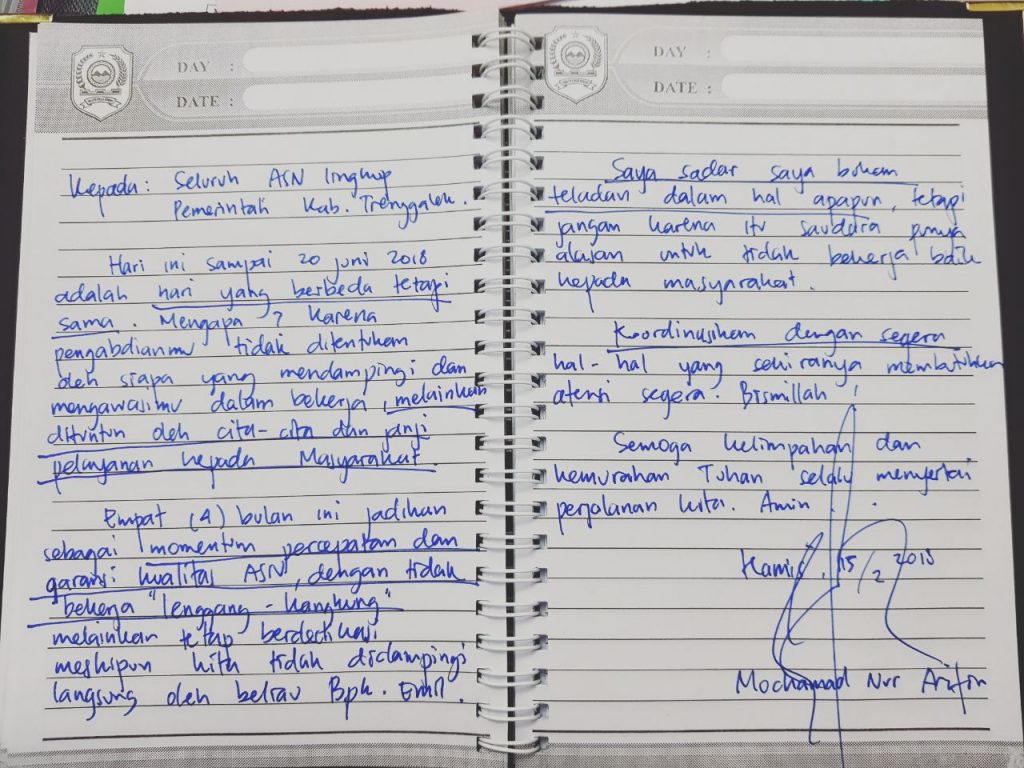 DAY :
DATE :
Kepada : Seluruh ASN lingkup
Pemerintah Kab. Trenggalek.
Hari ini sampai 20 juni 2018
adalah hari yang berbeda tetapi
sama. Mengapa ? Karena
pengabdianmu tidak ditentukan
oleh siapa yang mendampingi dan
mengawasimu dalam bekerja, melainkan
dituntun oleh cita-cita dan janji
pelayanan kepada Masyarakat.
Empat (4) bulan ini jadikan
sebagai momentum percepatan dan
garansi kualitas ASN, dengan tidak
bekerja "lenggang-kangkung"
melainkan tetap berdedikasi
meskipun kita tidak didampingi
langsung oleh beliau Bpk. Emil.
DAY :
DATE :
Saya sadar saya bukan
teladan dalam hal apapun, tetapi
jangan karena itu saudara punya
alasan untuk tidak bekerja baik
kepada masyarakat.
Koordinasikan dengan segera
hal-hal yang sekiranya membutuhkan
atensi segera. Bismillah !
Semoga kelimpahan dan
kemurahan Tuhan selalu menyertai
perjalanan kita. Amin.
Kamis, 15/2 2018
Mochamad Nur Arifin